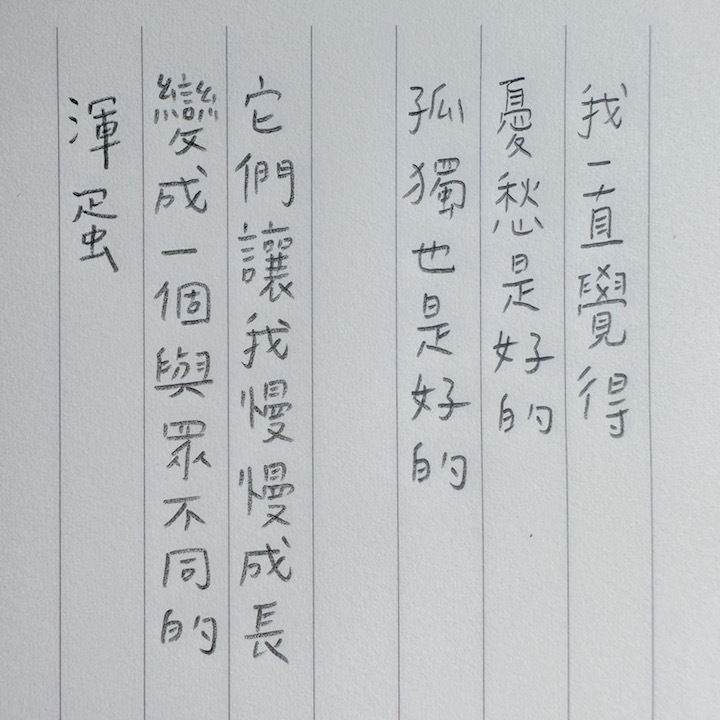 我一直覺得
憂愁是好的
孤獨也是好的
它們讓我慢慢成長
變成一個與眾不同的
渾蛋